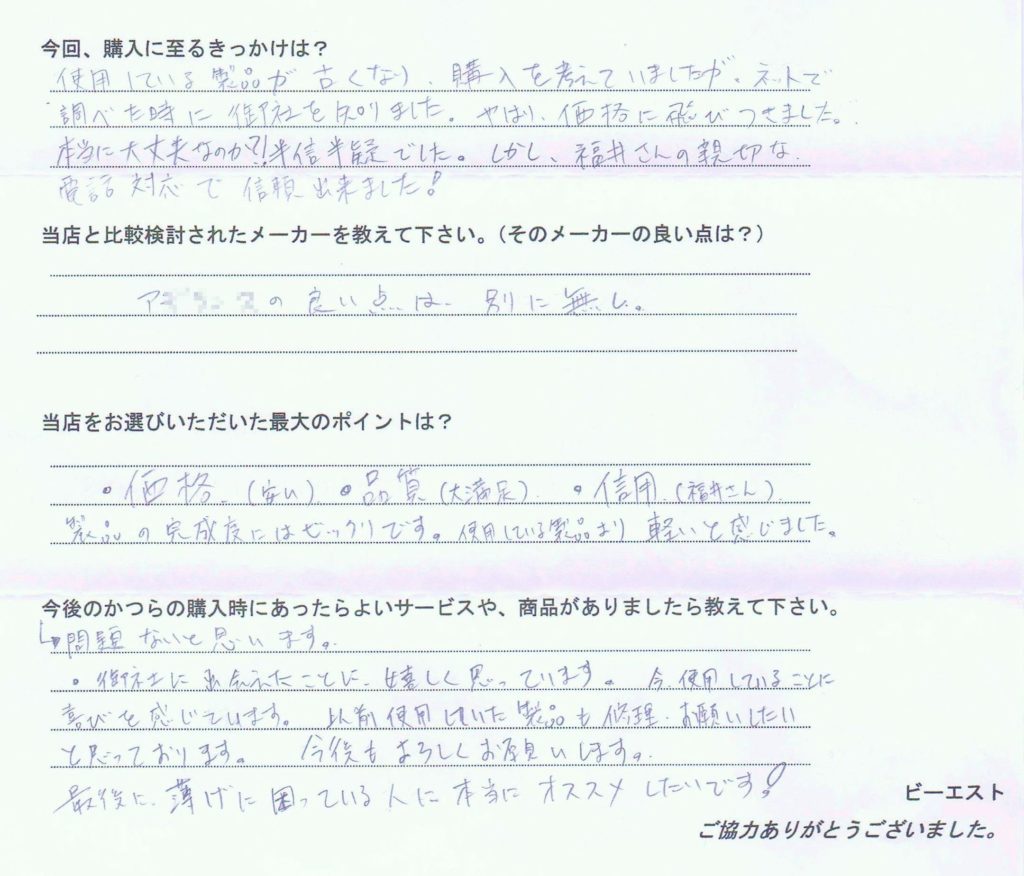 今回、購入に至るきっかけは？
使用している製品が古くなり、購入を考えていましたが、ネットで
調べた時に御社を知りました。やはり、価格に飛びつきました。
本当に大丈夫なのか?!半信半疑でした。しかし、福井さんの親切な
電話対応で信頼出来ました!
当店と比較検討されたメーカーを教えて下さい。（そのメーカーの良い点は？）
ア の良い点は、別に無し。
当店をお選びいただいた最大のポイントは？
・価格（安い）・品質（大満足）・信用（福井さん）
製品の完成度にはビックリです。使用している製品より軽いと感じました。
今後のかつらの購入時にあったらよいサービスや、商品がありましたら教えて下さい。
↳問題ないと思います。
・御社に出会えたことに、嬉しく思っています。今、使用していることに
喜びを感じています。以前使用していた製品も修理、お願いしたい
と思っております。今後もよろしくお願いします。
最後に、薄げに困っている人に本当にオススメしたいです!
ビーエスト
ご協力ありがとうございました。